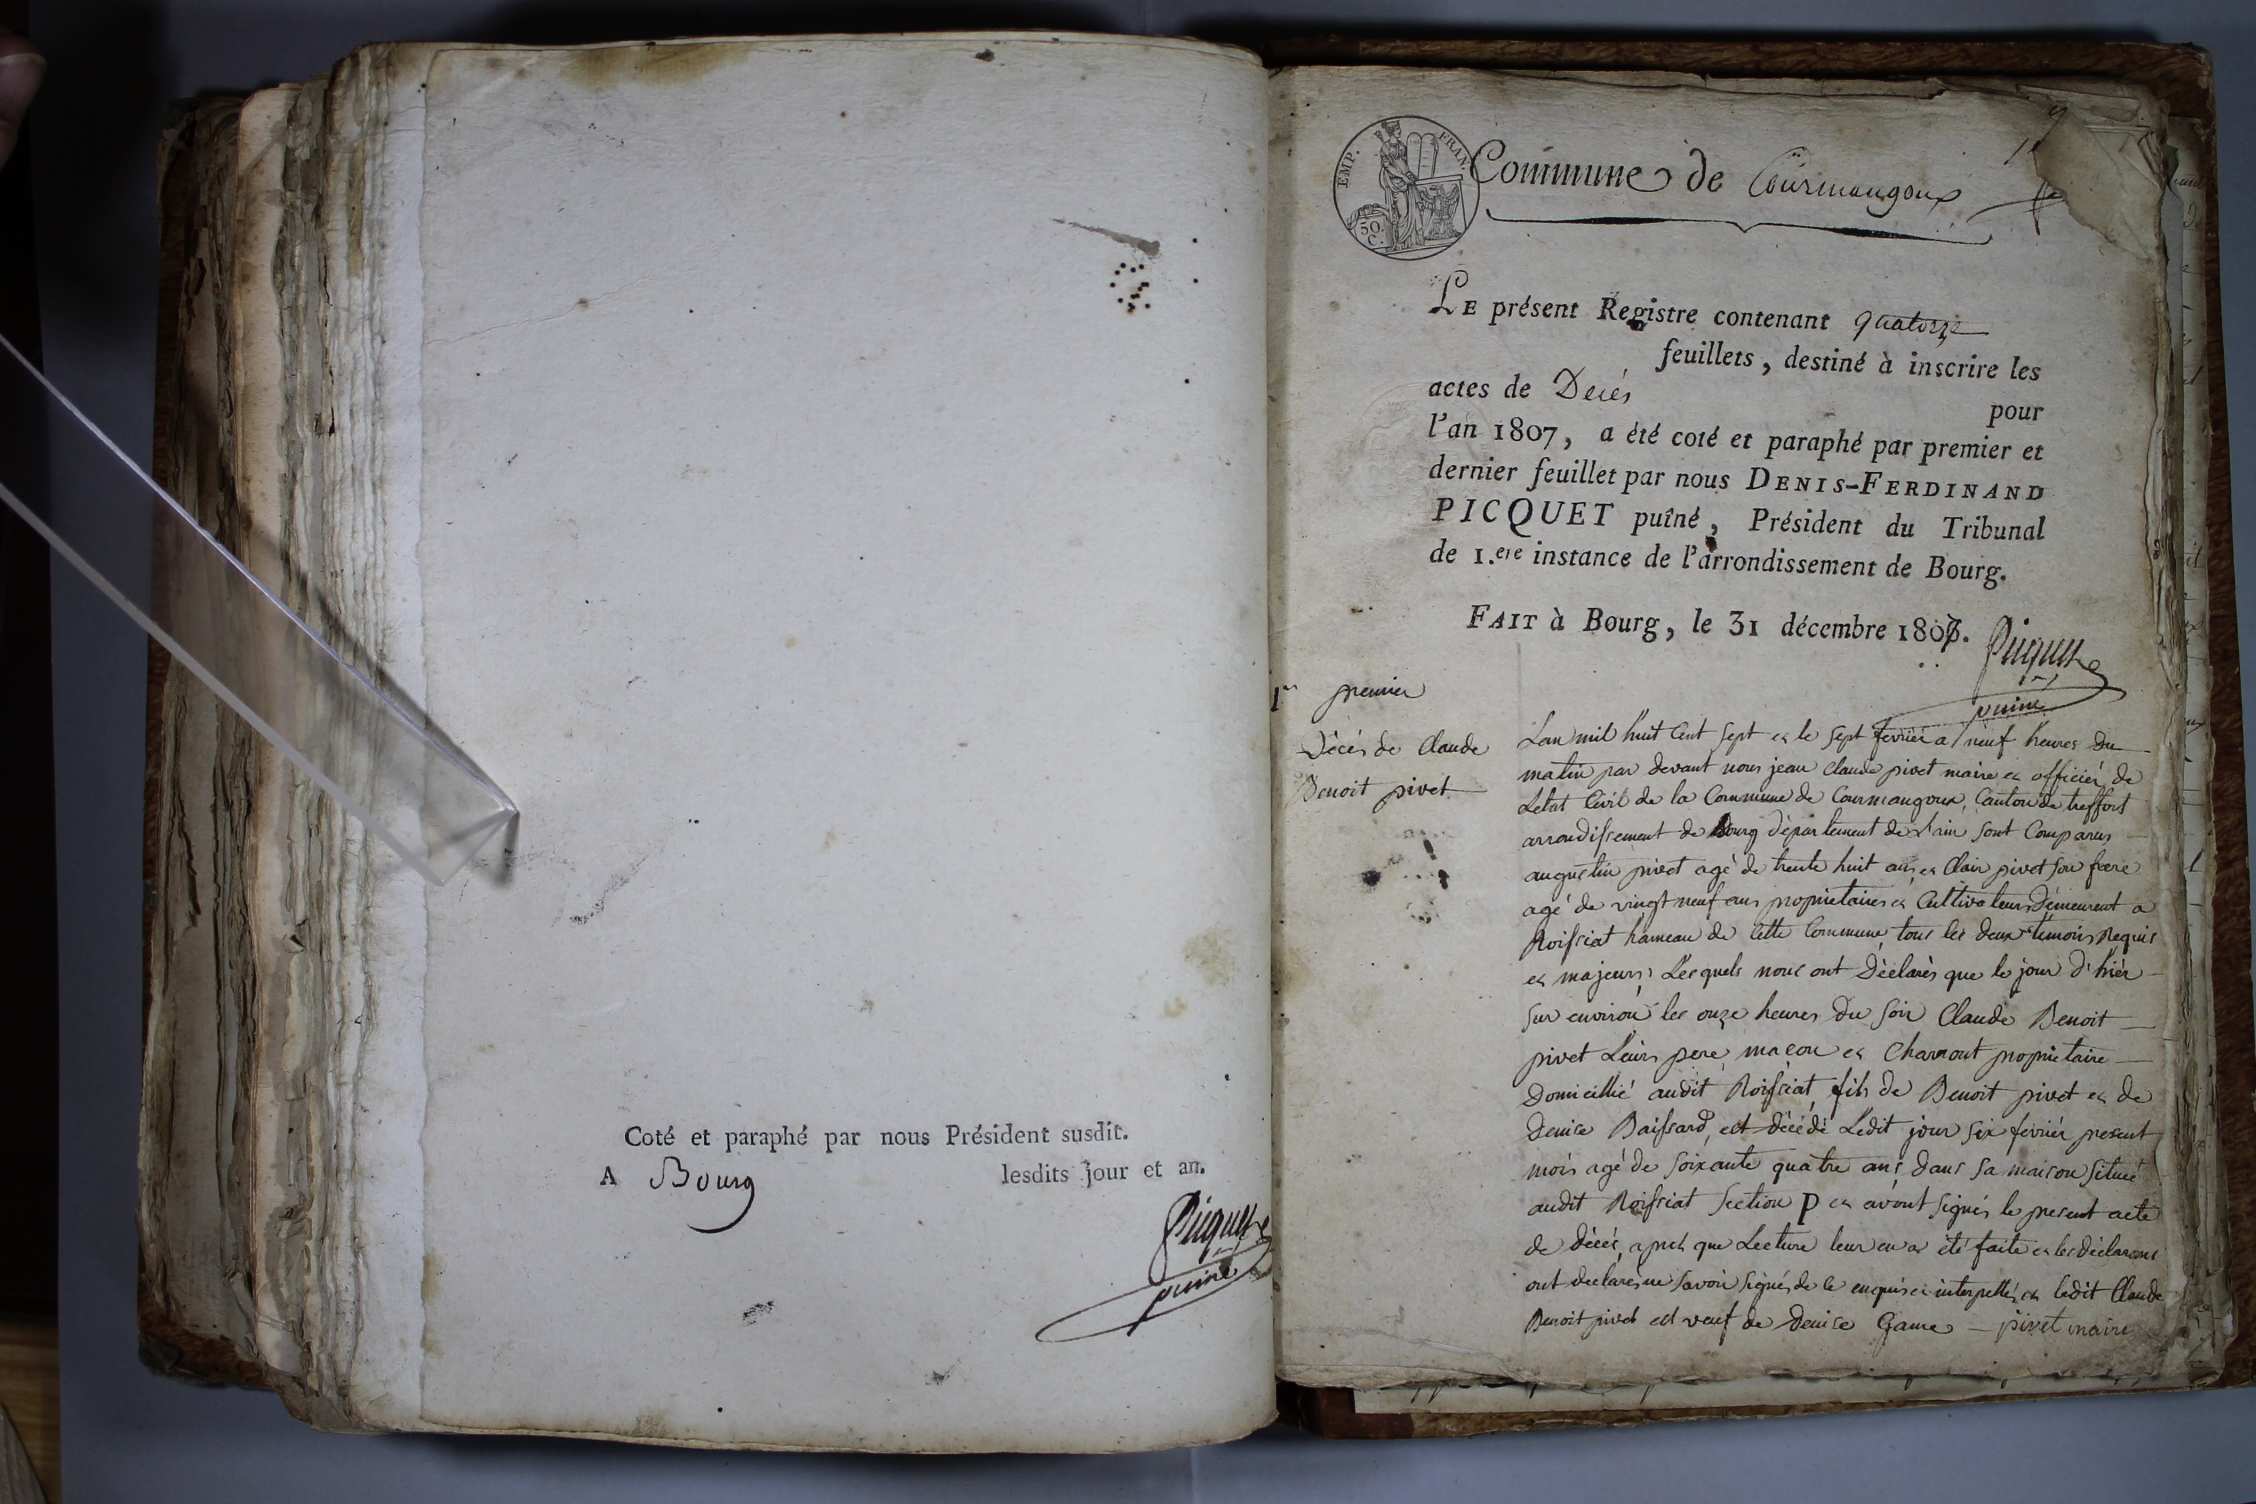 Coté et paraphé par nous Président susdit.
A Bourg lesdits jour et an.
Picquet
puiné
EMP. FRAN.
50.
C.
Commune de Courmangoux
LE présent Registre contenant quatorze
feuillets, destiné à inscrire les
actes de Decés
pour
l'an 1807, a été coté et paraphé par premier et
dernier feuillet par nous DENIS-FERDINAND
PICQUET puîné, Président du Tribunal
de 1.ere instance de l'arrondissement de Bourg.
FAIT à Bourg, le 31 décembre 1806.
Picquet
puiné
1er premier
Décés de Claude
Benoit pivet
Lan mil huit Cent Sept et le sept fevrier a neuf heures du
matin par devant nous jean Claude pivet maire et officier de
Letat Civil de la Commune de Courmangoux, Canton de treffort
arrondissement de Bourg département de Lain sont Comparus
augustin pivet agé de trente huit ans et Clair pivet son frere
agé de vingt neuf ans proprietaires et Cultivateurs Demeurent a
Roissiat hameau de Cette Commune, tous les deux temoins Requis
et majeurs, Lesquels nous ont Déclarés que le jour d'hièr
sur environ les onze heures du soir Claude Benoit
pivet Leurs pere maçon et Charront proprietaire
Domicillié audit Roissiat fils de Benoit pivet et de
Denise Baissard, est décédé Ledit jour six fevrier present
mois agé de soixante quatre ans dans sa maison située
audit Roissiat Section P et avont signés le present acte
de décés, aprés que Lecture leur en a été faite et les déclarans
ont declarés ne savoir signés de ce enquis et interpellés et ledit Claude
Benoit pivet est veuf de Denise Game — pivet maire